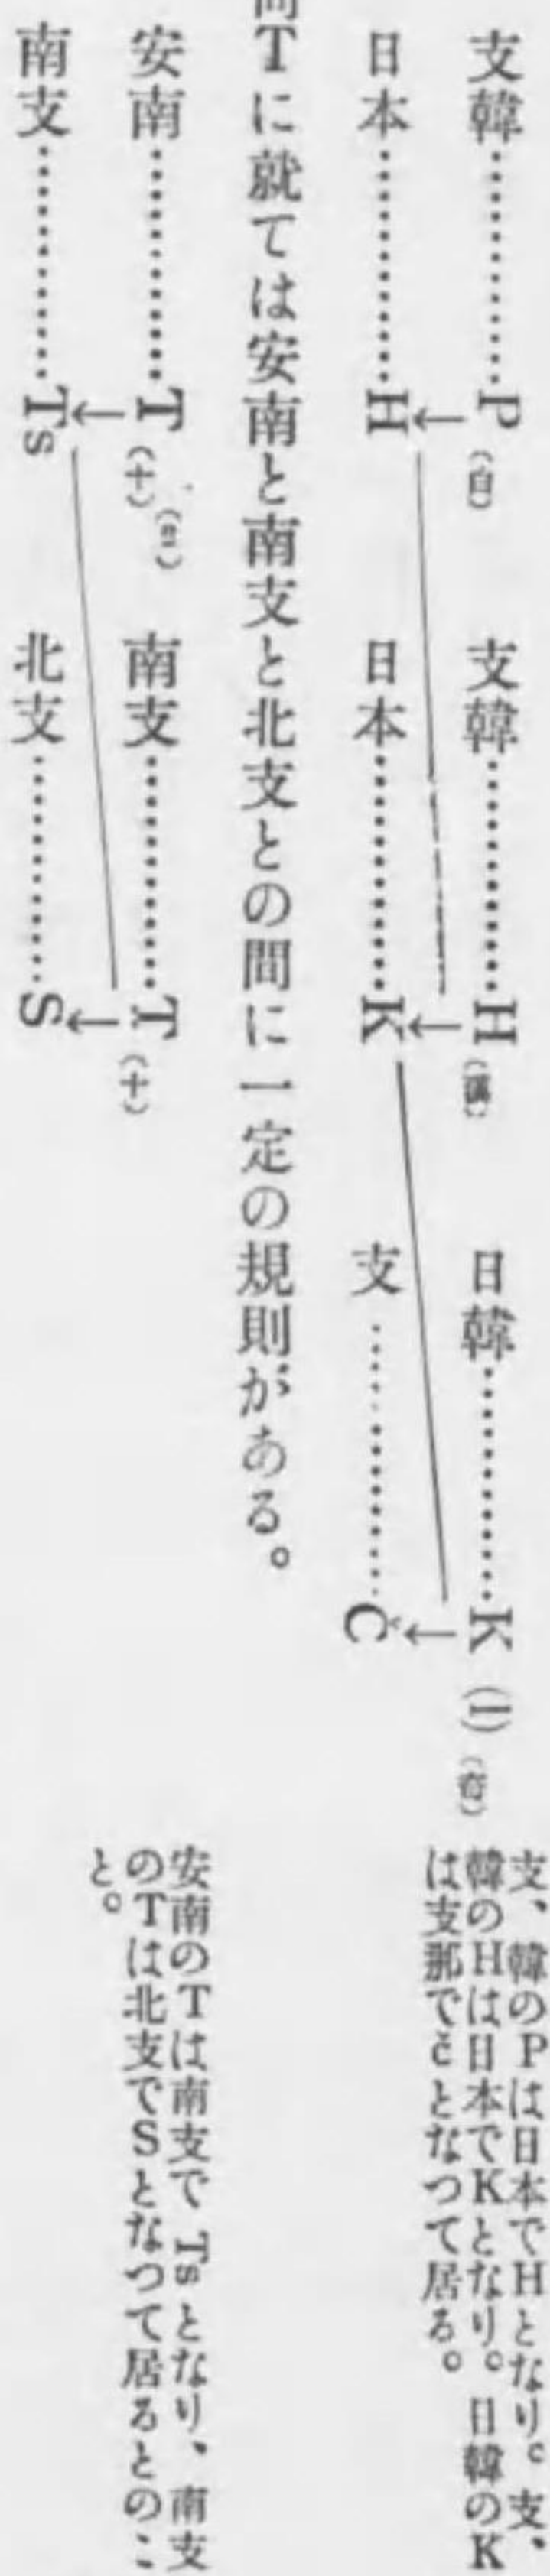 支韓…………P(白) 支韓…………H(漢) 日韓…………K(一)(奇)
↓ ↓ ↓
日本…………H 日本…………K 支…………Č
支、韓のPは日本でHとなり。支、
韓のHは日本でKとなり。日韓のK
は支那でčとなつて居る。
Tに就ては安南と南支と北支との間に一定の規則がある。
安南…………T(十) 南支…………T(十)
↓ ↓
南支…………Ts 北支…………S
安南のTは南支でTsとなり、南支
のTは北支でSとなつて居るとのこ
と。